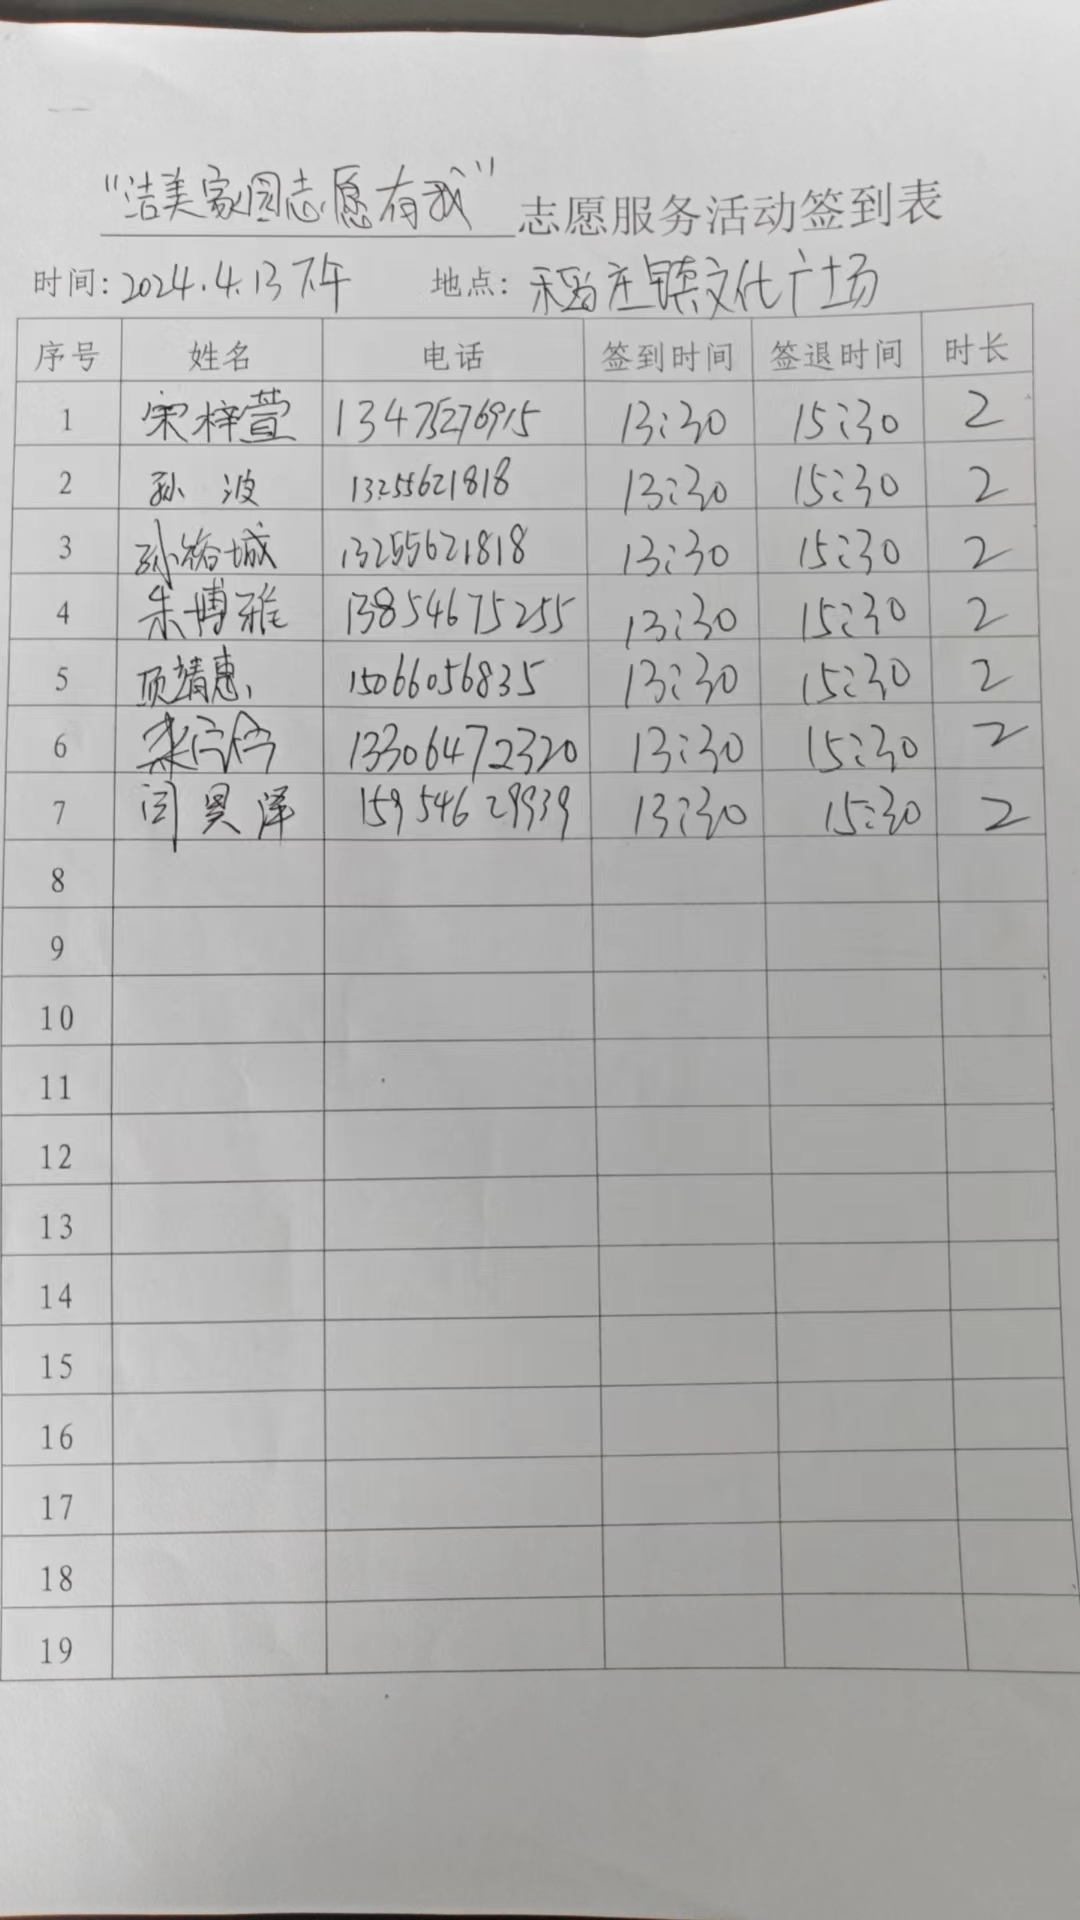 “洁美家园志愿有我”志愿服务活动签到表
时间：2024.4.13下午 地点：稻庄镇文化广场
序号 姓名 电话 签到时间 签退时间 时长
1 宋梓萱 13475276915 13:30 15:30 2
2 孙波 13255621818 13:30 15:30 2
3 孙裕城 13255621818 13:30 15:30 2
4 朱博雅 13854675255 13:30 15:30 2
5 项靖惠 15066056835 13:30 15:30 2
6 13306472320 13:30 15:30 2
7 闫昊泽 15954629939 13:30 15:30 2
8
9
10
11
12
13
14
15
16
17
18
19